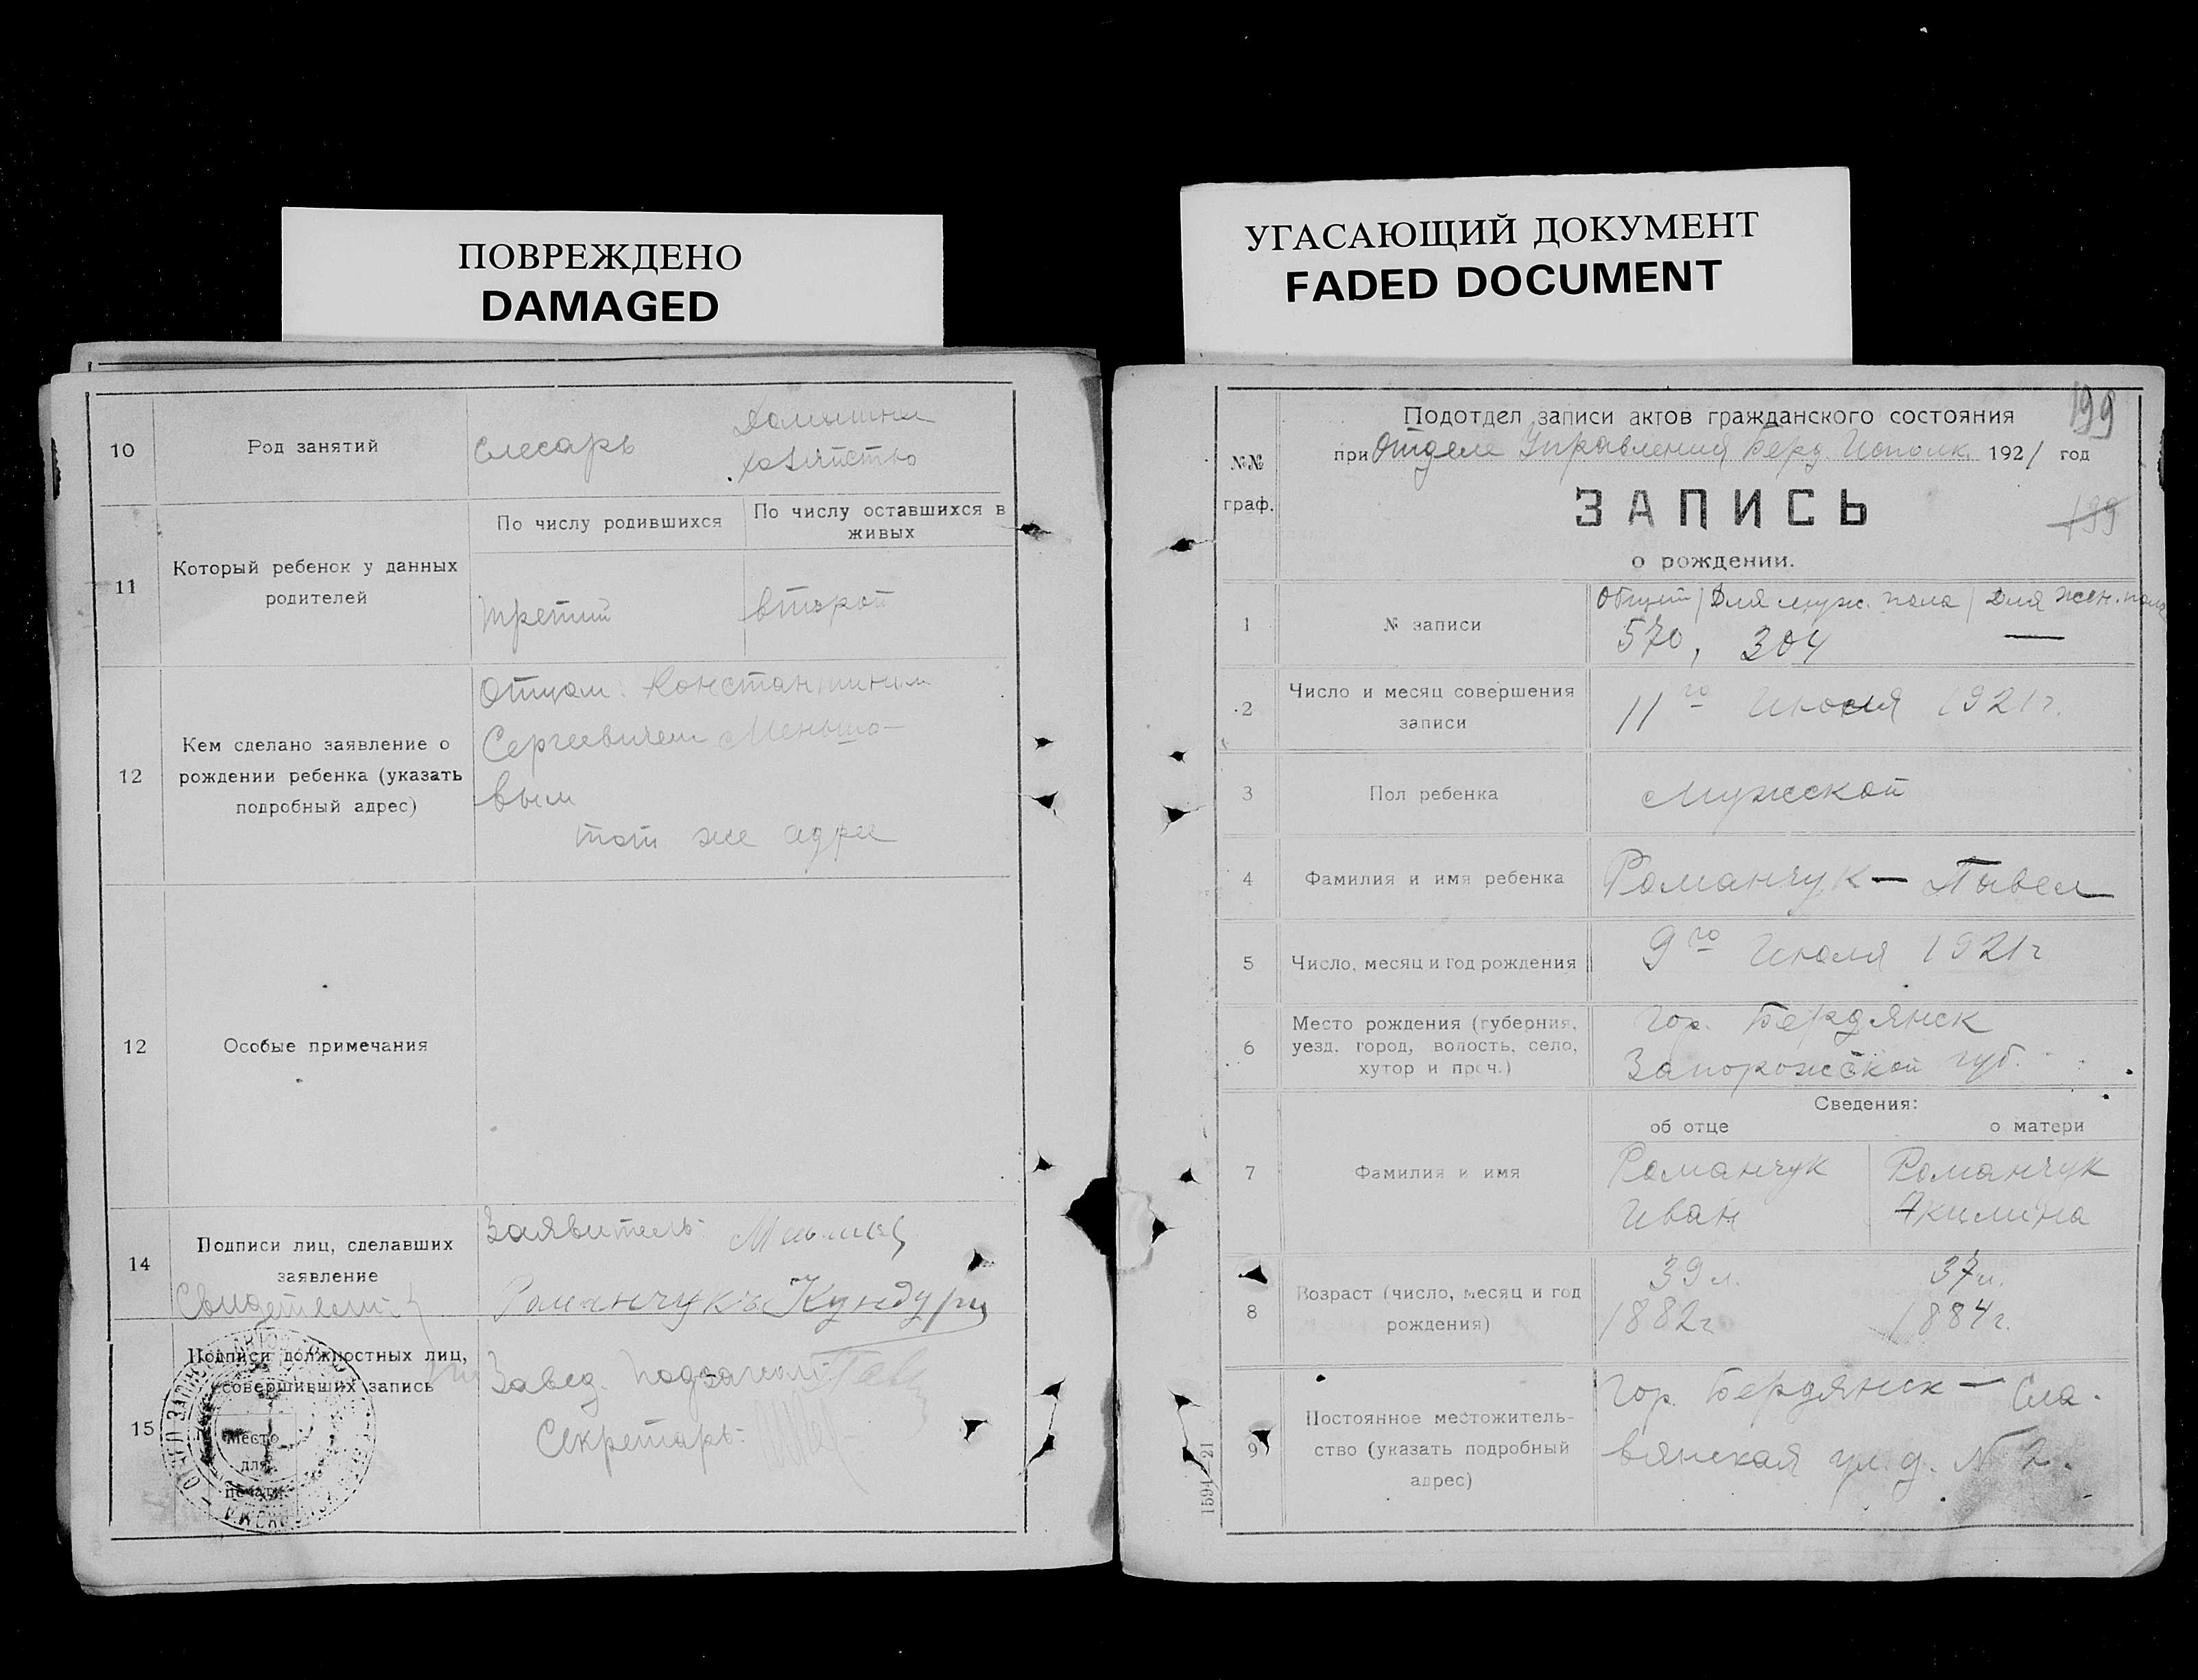 ПОВРЕЖДЕНО
DAMAGED
10
Род занятий
слесарь
Домашнее
хозяйство
11
Который ребенок у данных
родителей
По числу родившихся
По числу оставшихся в
живых
третий
второй
12
Кем сделано заявление о
рождении ребенка (указать
подробный адрес)
Отцом: Константином
Сергеевичем Меньшо-
вым
тот же адрес
12
Особые примечания
14
Подписи лиц, сделавших
заявление
Свидетели:
Заявитель:
Романчукъ Кундури
15
Подписи должностных лиц,
совершивших запись
Место
для
печати
Завед. подзагсом:
Секретарь:
УГАСАЮЩИЙ ДОКУМЕНТ
FADED DOCUMENT
199
№№
граф.
Подотдел записи актов гражданского состояния
при Отделе Управления Берд. Исполк. 1921 год
ЗАПИСЬ
199
о рождении.
1
№ записи
Общий / Для муж. пола / Для жен. пола
570, 304 —
2
Число и месяц совершения
записи
11го Июля 1921г.
3
Пол ребенка
мужской
4
Фамилия и имя ребенка
Романчук — Павел
5
Число, месяц и год рождения
9го Июля 1921г
6
Место рождения (губерния,
уезд, город, волость, село,
хутор и проч.)
гор. Бердянск
Запорожской губ.
Сведения:
об отце
о матери
7
Фамилия и имя
Романчук
Иван
Романчук
Акилина
8
Возраст (число, месяц и год
рождения)
39 л.
1882г
37 л.
1884г.
9
Постоянное местожитель-
ство (указать подробный
адрес)
гор. Бердянск — Сла-
вянская ул. д. № 2.
1594—21